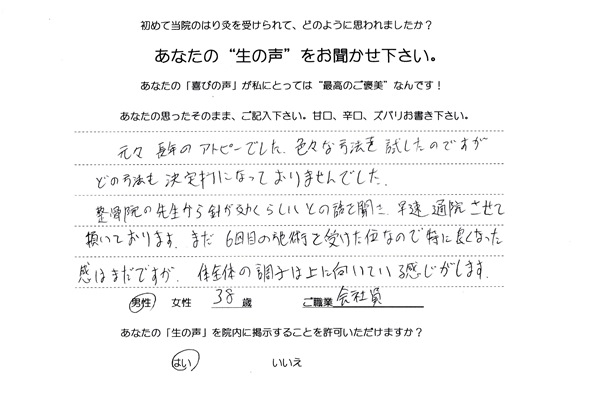 初めて当院のはり灸を受けられて、どのように思われましたか?
あなたの“生の声”をお聞かせ下さい。
あなたの「喜びの声」が私にとっては“最高のご褒美”なんです!
あなたの思ったそのまま、ご記入下さい。甘口、辛口、ズバリお書き下さい。
元々 長年のアトピーでした。色々な方法を試したのですが
どの方法も決定打になっておりませんでした。
整骨院の先生から針が効くらしいとの話を聞き、早速通院させて
頂いております。まだ6回目の施術を受けた位なので特に良くなった
感はまだですが、体全体の調子は上に向いている感じがします。
男性 女性 38 歳 ご職業 会社員
あなたの「生の声」を院内に掲示することを許可いただけますか?
はい いいえ